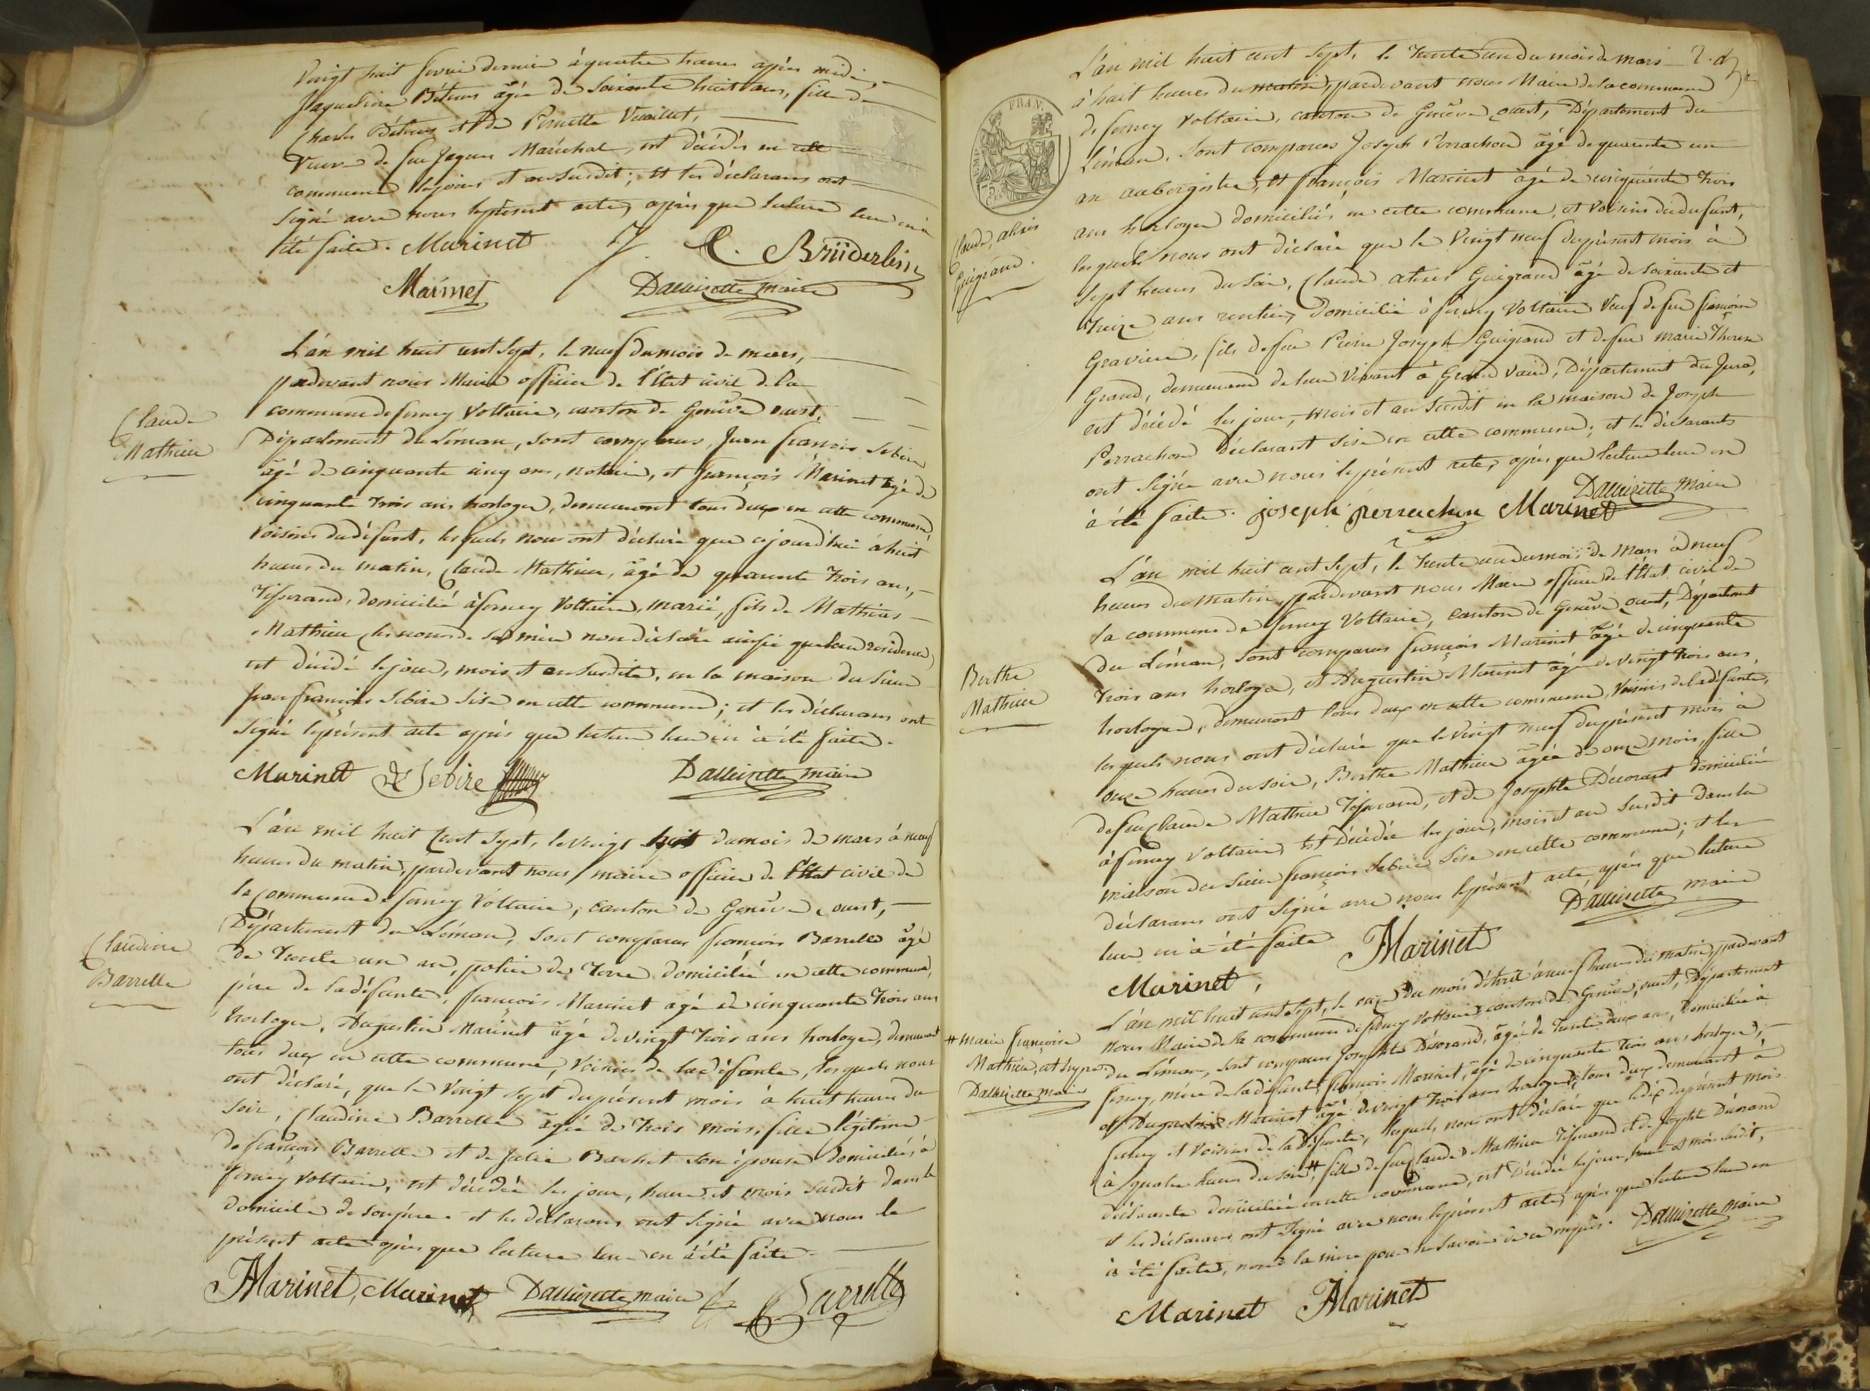 Vingt huit fevrier dernier à quatre heures après midi,
Jaqueline Bétems âgée de Soixante huit ans, fille de
Charles Bétems et de Pernette Vuaillet,
Veuve de feu Jaques Maréchal, est décédée en cette
commune les jour et an Susdit; et les déclarans ont
Signé avec nous le présent acte, après que lecture leur en à
été faite. Marinet C. Brüderlein
Marinet Dallizette maire
Claude
Mathieu
L'an mil huit cent Sept, le neuf du mois de mars,
pardevant nous Maire officier de l'Etat civil de la
commune de ferney Voltaire, canton de Genêve ouest,
Département du Léman, sont comparus, Jean françois Sebire
âgé de cinquante cinq ans, notaire, et françois Marinet âgé de
cinquante trois ans horloger, demeurant tous deux en cette commune
Voisins du défunt, lesquels nous ont déclaré que cejourd'hui à huit
heures du matin, Claude Mathieu, âgé de quarante trois ans,
Tisserand, domicilié à ferney Voltaire, marié, fils de Mathieu
Mathieu (les noms de sa mère non déclarée ainsi que leur résidence)
est décédé les jour, mois et an Susdits, en la maison du Sieur
Jean françois Sebire Sise en cette commune; et les déclarans ont
Signé le présent acte après que lecture leur en à été faite.
Marinet Sebire Dallizette maire
Claudine
Barrelle
L'an mil huit Cent Sept, le vingt huit du mois de mars à neuf
heures du matin, pardevant nous maire officier de l'Etat civil de
la Commune de ferney Voltaire, canton de Genêve ouest,
Département du Léman, Sont comparus françois Barrelle âgé
de Trente un an, potier de Terre domicilié en cette commune,
père de la défunte, françois Marinet âgé de cinquante trois ans
horloger, Augustin Marinet âgé de vingt trois ans horloger, demeurant
tous deux en cette commune, Voisins de la défunte, lesquels nous
ont déclaré, que le Vingt sept du présent mois à huit heures du
Soir, Claudine Barrelle âgée de trois mois, fille légitime
de françois Barrelle et de Julie Bachet son épouse domiciliés à
ferney Voltaire, est décédée les jour, heure et mois Susdit dans le
domicile de Son père. et les déclarans ont Signé avec nous le
présent acte après que lecture leur en à été faite.
AMarinet, Marinet Dallizette maire Barrelle
L'an mil huit cent Sept, le trente un du mois de mars
à huit heures du matin, pardevant nous Maire de la commune
de ferney Voltaire, canton de Genêve ouest, Département du
Léman, Sont comparus Joseph Perrachon âgé de quarante un
an aubergiste, et françois Marinet âgé de cinquante trois
ans horloger domiciliés en cette commune, et Voisins du défunt,
lesquels nous ont déclaré que le Vingt neuf du présent mois à
Sept heures du Soir, Claude alexis Guigrand âgé de Soixante et
Treize ans rentier, domicilié à ferney Voltaire Veuf de feu françoise
Gravier, fils de feu Pierre Joseph Guigrand et de feu Marie Therese
Grand, demeurant de leur Vivant à Grand Vaud, Département du Jura,
est décédé les jour, mois et an Susdit en la maison de Joseph
Perrachon déclarant Sise en cette commune; et les déclarants
ont Signé avec nous le présent acte, après que lecture leur en
à été faite. joseph perrachon Marinet Dallizette maire
Claude, alexis
Guigrand.
Berthe
Mathieu
L'an mil huit cent Sept, le trente un du mois de Mars à neuf
heures du Matin, pardevant nous Maire officier de l'Etat civil de
la commune de ferney Voltaire, canton de Genêve ouest, Départemt
du Léman, Sont comparus françois Marinet âgé de cinquante
trois ans horloger, et Augustin Marinet âgé de vingt trois ans,
horloger, demeurant tous deux en cette commune, Voisins de la défunte,
lesquels nous ont déclaré que le Vingt neuf du présent mois à
onze heures du Soir, Berthe Mathieu âgée de onze mois, fille
de feu Claude Mathieu Tisserand, et de Josephte Décorant domiciliée
à ferney Voltaire, Est Décédée les jour, mois et an Susdit dans la
maison du Sieur françois Sebire Sise en cette commune; et les
déclarans ont Signé avec nous le présent acte après que lecture
leur en à été faite Dallizette maire
Marinet, AMarinet
# Marie françoise
Mathieu, et
Dallizette maire
L'an mil huit cent Sept, le onze du mois d'avril à neuf heures du matin, pardevant
nous Maire de la commune de ferney Voltaire canton de Genêve, ouest, Département
du Léman, Sont comparus Josephte Désorand, âgée de Trente deux ans, domiciliée à
ferney, mère de la défunte, françois Marinet, âgé de cinquante trois ans horloger,
et Augustin Marinet âgé de vingt trois ans horloger, tous deux demeurant à
ferney et Voisins de la défunte, lesquels nous ont déclaré que le dix du présent mois
à quatre heures du Soir #, fille de feu Claude Mathieu Tisserand et de Josephte Désorand
déclarante domiciliée en cette commune, est Décédée les jour, heure et mois susdit,
et les déclarans ont Signé avec nous le présent acte, après que lecture leur en
à été faite, non la mère pour ne Savoir de ce requise. Dallizette maire
Marinet AMarinet